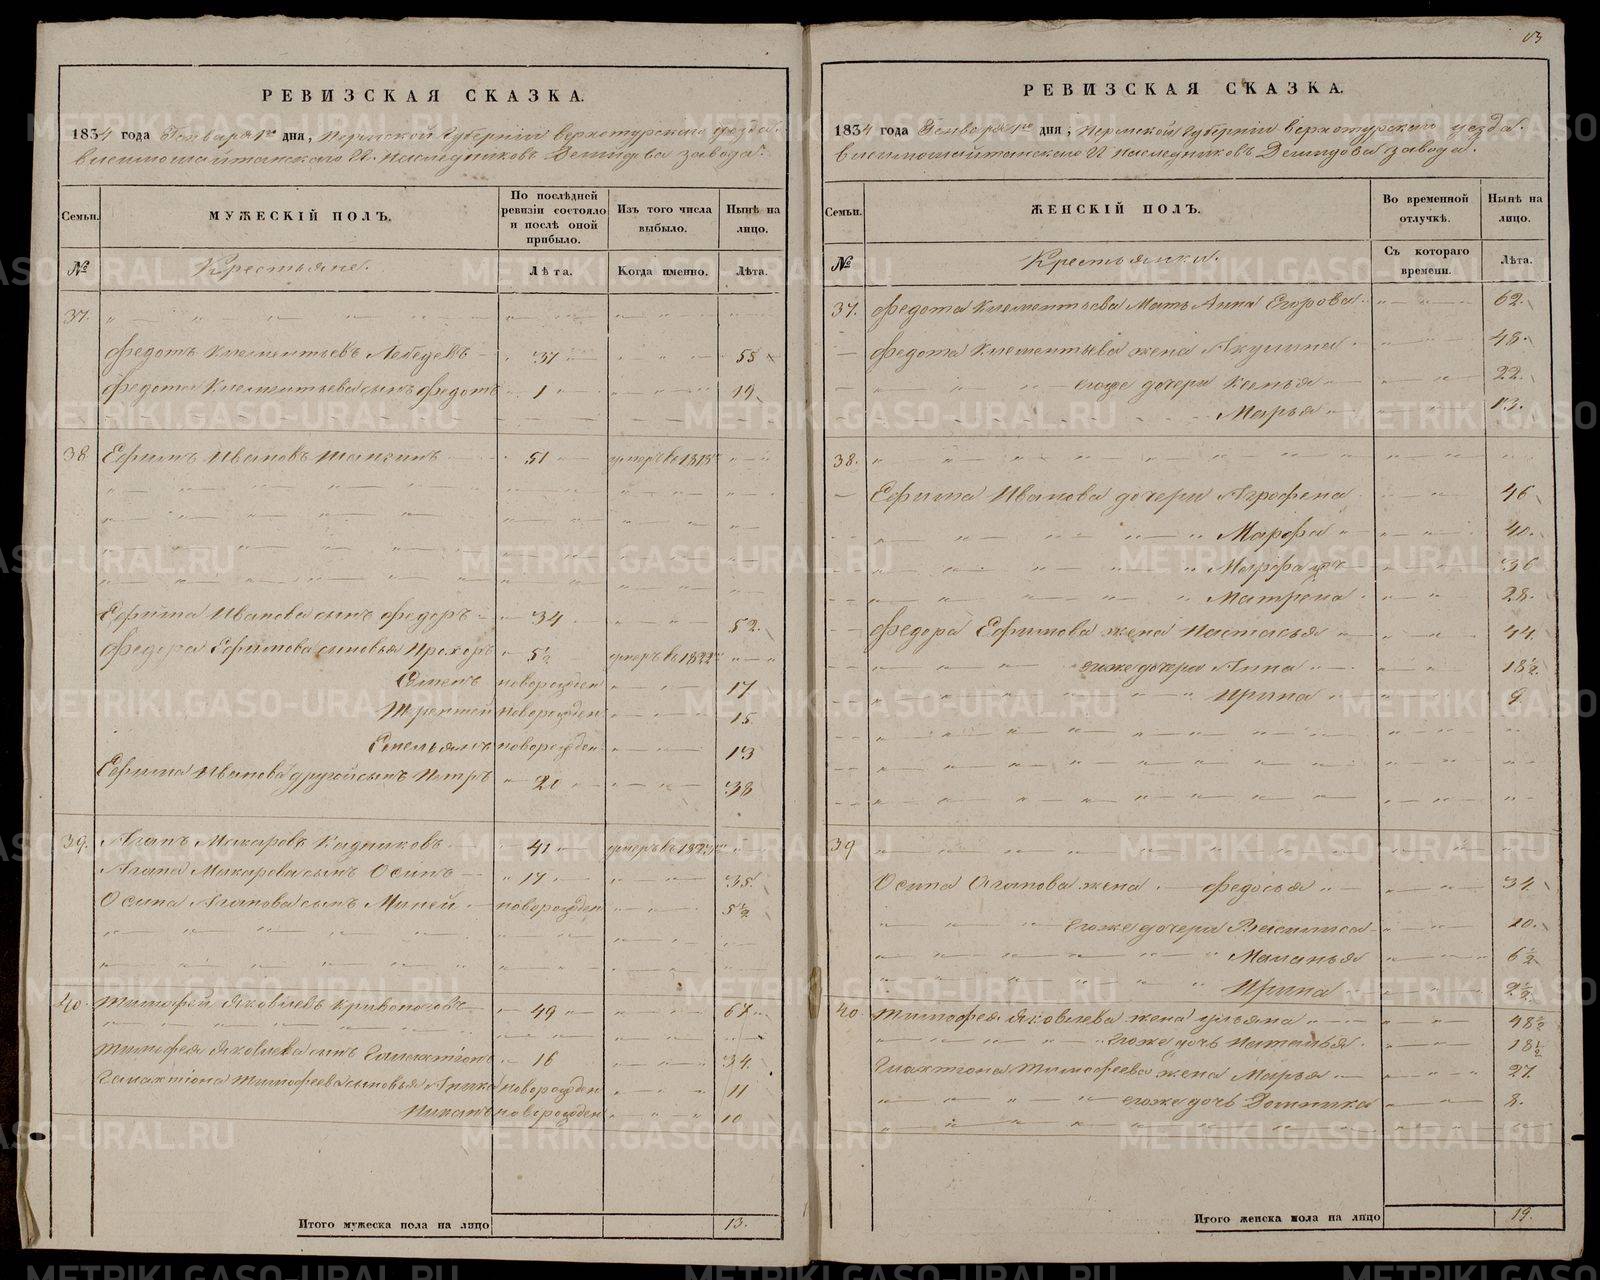 РЕВИЗСКАЯ СКАЗКА.
1834 года Генваря 1го дня, Пермской Губернiи верхотурскаго уезда.
висимошайтанскаго Г.г. наследниковъ Демидова завода.
Семьи.
МУЖЕСКIЙ ПОЛЪ.
По послѣдней ревизiи состояло и послѣ оной прибыло.
Изъ того числа выбыло.
Нынѣ на лицо.
№
Крестьяне.
Лѣта.
Когда именно.
Лѣта.
37.
Федотъ Клементьевъ Лебедевъ 37 55
Федота Клементьева сынъ Федотъ 1 19
38 Ефимъ Ивановъ Шангинъ 51 умеръ въ 1818
Ефима Иванова сынъ Федоръ 34 52.
Федора Ефимова сыновья Прохоръ 5½ умеръ въ 1822
Семенъ новорожден 17
Терентей новорожден 15
Емельянъ новорожден 13
Ефима Иванова другой сынъ Петръ 20 38
39. Агапъ Макаровъ Кадниковъ 41 умеръ въ
Агапа Макарова сынъ Осипъ 17 35.
Осипа Агапова сынъ Миней новорожден 5½
40. Тимофей Яковлевъ Кривоноговъ 49 67
Тимофея Яковлева сынъ Галактiонъ 16 34.
Галактiона Тимофеева сыновья новорожден 11
новорожден 10
Итого мужеска пола на лицо 13.
РЕВИЗСКАЯ СКАЗКА.
1834 года Генваря 1го дня, Пермской Губернiи верхотурскаго уезда.
висимошайтанскаго Г.г. наследниковъ Демидова завода.
Семьи.
ЖЕНСКIЙ ПОЛЪ.
Во временной отлучкѣ.
Нынѣ на лицо.
№
Крестьянки.
Съ котораго времени.
Лѣта.
37. Федота Клементьева Мать Анна Егорова 62.
Федота Клементьева жена Акулина 48.
егоже дочери 22.
Марья 13.
38.
Ефима Иванова дочери Агрофена 46
Марфа 40.
Марфа 36
Матрена 28.
Федора Ефимова жена Настасья 44.
егоже дочери Анна 18½
Ирина 9
39
Осипа Агапова жена Федосья 34.
егоже дочери Василиса 10.
Маланья 6½
Ирина 2½
40. Тимофея Яковлева жена Ульяна 48½
егоже дочь Наталья 18½
Галактiона Тимофеева жена Марья 27.
егоже дочь Домника 8.
Итого женска пола на лицо 19.
METRIKI.GASO-URAL.RU